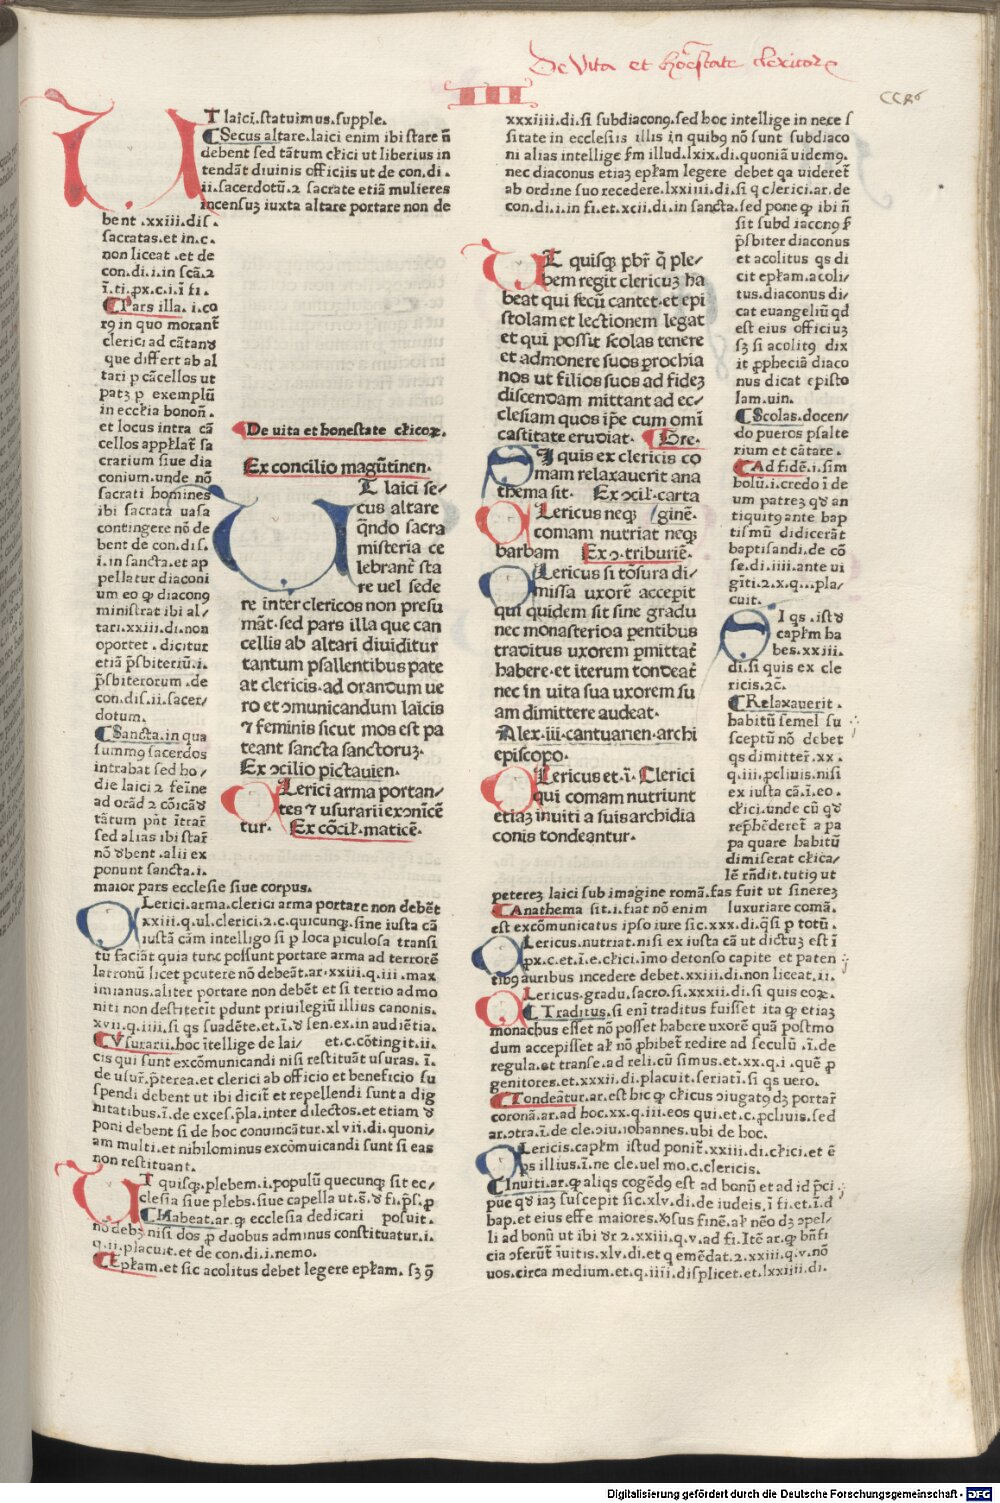 De Vita et hõestate clericorꝫ
III
T laici.statuimus.supple.
Secus altare.laici enim ibi stare ñ
debent sed tãtum cƚici ut liberius in
tendãt diuinis officiis ut de con.di.
ii.sacerdotũ.2 sacrate etiã mulieres
incensuꝫ iuxta altare portare non de
bent .xxiii.dis.
sacratas.et in.c.
non liceat .et de
con.di.i.in scã.2
ĩ.ti.ꝓx.c.i.ĩ fi.
Pars illa. i.co
rꝯ in quo morant̃
clerici ad cãtanꝺ
que differt ab al
tari p cãcellos ut
patꝫ p exemplũ
in eccƚia bonoñ.
et locus intra cã
cellos appƚlat̃ sa
crarium siue dia
conium.unde nõ
sacrati homines
ibi sacrata uasa
contingere nõ de
bent de con.dis.
i.in sancta.et ap
pellatur diaconi
um eo ꝙ diaconꝯ
ministrat ibi al/
tari.xxiii.di.non
oportet . dicitur
etiã p̃sbiteriũ.i.
p̃sbiterorum .de
con.dis.ii.sacer/
dotum.
Sancta.in qua
summꝯ sacerdos
intrabat sed ho/
die laici 2 feĩne
ad orãd 2 cõicãꝺ
tãtum pñt ĩtrar̃
sed alias ibi star̃
nõ ꝺbent .alii ex
ponunt sancta.i.
maior pars ecclesie siue corpus.
De uita et honestate cƚicoꝝ.
Ex concilio magũtinen.
T laici se/
cus altare
qñdo sacra
misteria ce
lebrant̃ sta
re uel sede
re inter clericos non presu
mãt.sed pars illa que can
cellis ab altari diuiditur
tantum psallentibus pate
at clericis.ad orandum ue
ro et ɔmunicandum laicis
⁊ feminis sicut mos est pa
teant sancta sanctoruꝫ.
Ex ɔcilio pictauien.
Lerici arma portan/
tes ⁊ usurarii exɔnĩcẽ
tur. Ex cõciƚ.maticẽ.
Lerici.arma.clerici arma portare non debẽt
xxiii.q.ul.clerici.2.c.quicunqꝫ.sine iusta cã
iustã cãm intelligo si p loca piculosa transi
tũ faciãt quia tunc possunt portare arma ad terrorẽ
latronũ licet pcutere nõ debeãt.ar.xxiii.q.iii .max
imianus.aliter portare non debẽt et si tertio admo
niti non destiterĩt pdunt priuilegiũ illius canonis.
xvii.q.iiii.si qs suadẽte.et.ĩ.ꝺ sen.ex.in audiẽtia.
Vsurarii.hoc ĩtellige de lai/ et.c.cõtingit.ii.
cis qui sunt excõmunicandi nisi restituãt usuras. ĩ.
de usur̃.p̃terea.et clerici ab officio et beneficio su
spendi debent ut ibi dicit̃ et repellendi sunt a dig
nitatibus.ĩ.de exces.p̃la.inter dilectos.et etiam ꝺ
poni debent si de hoc conuincãtur.xl vii.di.quoni/
am multi.et nihilominus excõmuicandi sunt si eas
non restituant.
T quisqꝫ.plebem.i.populũ quecunqꝫ sit ec/
clesia siue plebs.siue capella ut.s̃.ꝺ fi.p̃s.ꝓ
Habeat.ar.ꝙ ecclesia dedicari posuit.
nõ debꝫ nisi dos ꝓ duobus adminus constituatur.i.
q.ii.placuit.et de con.di.i.nemo.
Epƚam.et sic acolitus debet legere epƚam. sꝫ ꝯ̃
xxxiiii.di.si subdiaconꝯ.sed hoc intellige in nece s
sitate in ecclesiis illis in quibꝯ nõ sunt subdiaco
ni alias intellige ẜm illud.lxix.di.quoniã uidemꝯ.
nec diaconus etiaꝫ epƚam legere debet qa uideret̃
ab ordine suo recedere.lxxiiii.di.si q clerici.ar.de
con.di.i.in fi.et.xcii.di.in sancta.sed pone ꝙ ibi ñ
sit subd iaconꝯ ẜ
p̃sbiter diaconus
et acolitus qs di
cit epƚam.acoli/
tus.diaconus di/
cat euangeliũ qd
est eius officiuꝫ
sꝫ si acolitꝯ dix
it ꝓpheciã diaco
nus dicat episto
lam.uin.
Scolas.docen/
do pueros psalte
rium et cãtare.
Ad fidẽ.i.sim
bolũ.i.credo ĩ de
um patreꝫ qꝺ an
tiquitꝯ ante bap
tismũ didicerãt
baptisandi.de cõ
se.di.iiii.ante ui
gĩti.2.x.q...pla/
cuit.
L quisqꝫ pbr̃ q̃ ple/
bem regit clericuꝫ ha
beat qui secũ cantet.et epi
stolam et lectionem legat
et qui possit scolas tenere
et admonere suos ꝑrochia
nos ut filios suos ad fideꝫ
discendam mittant ad ec/
clesiam quos ip̃e cum omĩ
castitate erudiat. Bre.
I quis ex clericis co
mam relaxauerit ana
thema sit. Ex ɔciƚ.carta
Lericus neqꝫ /ginẽ.
comam nutriat neqꝫ
barbam Ex ɔ.triburiẽ.
Lericus si tõsura di/
missa uxorẽ accepit
qui quidem sit sine gradu
nec monasterioa pentibus
traditus uxorem ꝑmittat̃
habere.et iterum tondeat̃
nec in uita sua uxorem su
am dimittere audeat.
Alex.iii.cantuarien.archi
episcopo.
Lericus et.ĩ. Clerici
qui comam nutriunt
etiaꝫ inuiti a suis archidia
conis tondeantur.
I qs .istꝺ
capƚm ha
bes.xxiii.
di.si quis ex cle
ricis.2c̃.
Relaxauerit .
habitũ semel su
sceptũ nõ debet
qs dimitter̃.xx .
q.iii.ꝓcliuis.nisi
ex iusta cã.ĩ.eo.
cƚici.unde cũ qꝺ
rep̃hẽderet̃ a pa
pa quare habitũ
dimiserat cƚica/
lẽ rñdit.tutiꝯ ut
petereꝫ laici sub imagine romã.fas fuit ut sinereꝫ
Anathema sit.i.fiat nõ enim luxuriare comã.
est excõmunicatus ipso iure sic.xxx.di.q̃si p totũ .
Lericus.nutriat.nisi ex iusta cã ut dictuꝫ est ĩ
ꝓx.c.et.ĩ.e.cƚici.ĩmo detonso capite et paten
tibꝯ auribus incedere debet.xxiii.di.non liceat.ii.
Lericus.gradu.sacro.si.xxxii.di.si quis eoꝝ.
Traditus.si enĩ traditus fuisset ita ꝙ etiaꝫ
monachus esset nõ posset habere uxorẽ quã postmo
dum accepisset aƚ nõ ꝓhibet̃ redire ad seculũ .ĩ.de
regula.et transe.ad reli.cũ simus.et.xx.q.i .quẽ ꝓ
genitores.et.xxxii.di.placuit.seriatĩ.si qs uero.
Tondeãtur.ar.est hic ꝙ cƚicus ɔiugatꝯ dꝫ portar̃
coronã.ar.ad hoc.xx.q.iii.eos qui.et.c.ꝓcliuis.sed
ar.ɔtra.ĩ.de cle.ɔiu.iohannes.ubi de hoc.
Lericis.capƚm istud ponit̃.xxiii.di.cƚici.et ẽ
ps illius.ĩ.ne cle.uel mo.c.clericis.
Inuiti.ar.ꝙ aliqs cogẽdꝯ est ad bonũ et ad id p̃ci
pue qꝺ iaꝫ suscepit sic.xlv.di.de iudeis.ĩ fi.et.ĩ.d
bap.et eius effe maiores.ꝟsus finẽ.aƚ nẽo dꝫ ɔpel/
li ad bonũ ut ibi ꝺr 2.xxiii.q.v.ad fi.Itẽ ar.ꝙ bñfi
cia ɔferũt̃ ĩuitis.xlv.di.et q emẽdat.2.xxiii.q.v.nõ
uos.circa medium.et.q.iiii.displicet.et.lxxiiii.di.
Digitalisierung gefördert durch die Deutsche Forschungsgemeinschaft - DFG